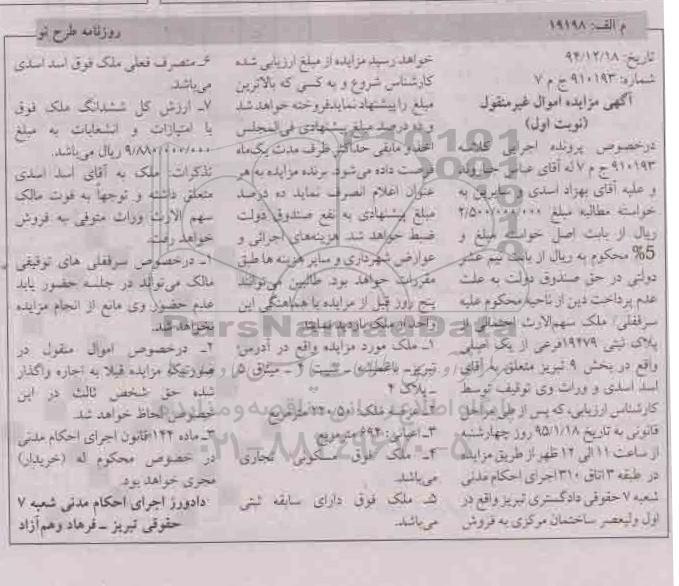 م الف: ۱۹۱۹۸
روزنامه طرح نو
تاریخ: ۹۴/۱۲/۱۸
شماره: ۹۱۰۱۹۳ ج م ۷
آگهی مزایده اموال غیرمنقول
(نوبت اول)
درخصوص پرونده اجرایی کلاسه
۹۱۰۱۹۳ ج م ۷ له آقای عباس
و علیه آقای بهزاد اسدی و سایرین به
خواسته مطالبه مبلغ ۲/۵۰۰/۰۰۰/۰۰۰
ریال از بابت اصل خواسته مبلغ و
5% محکوم به ریال از بابت نیم عشر
دولتی در حق صندوق دولت به علت
عدم پرداخت دین از ناحیه محکوم علیه
سرقفلی/ ملک سهم‌الارث احتمالی از
پلاک ثبتی ۱۹۴۷۹ فرعی از یک اصلی
واقع در بخش ۹ تبریز متعلق به آقای
اسد اسدی و وراث وی توقیف توسط
کارشناس ارزیابی، که پس از طی مراحل
قانونی به تاریخ ۹۵/۱/۱۸ روز چهارشنبه
از ساعت ۱۱ الی ۱۲ ظهر از طریق مزایده
در طبقه ۳ اتاق ۳۱۰ اجرای احکام مدنی
شعبه ۷ حقوقی دادگستری تبریز واقع در
اول ولیعصر ساختمان مرکزی به فروش
خواهد رسید مزایده از مبلغ ارزیابی شده
کارشناس شروع و به کسی که بالاترین
مبلغ را پیشنهاد نماید فروخته خواهد شد
و ده درصد مبلغ پیشنهادی فی‌المجلس
اخذ و مابقی حداکثر ظرف مدت یک‌ماه
فرصت داده می‌شود. برنده مزایده به هر
عنوان اعلام انصرف نماید ده درصد
مبلغ پیشنهادی به نفع صندوق دولت
ضبط خواهد شد. هزینه‌های اجرائی و
عوارض شهرداری و سایر هزینه ها طبق
مقررات خواهد بود. طالبین می‌توانند
پنج روز قبل از مزایده با هماهنگی این
واحد از ملک بازدید نمایند.
۱ـ ملک مورد مزایده واقع در آدرس:
تبریز ـ ـ ـ میثاق ۵
ـ پلاک ۴
۲ـ عرصه ملک: ۲۲۰/۵۰ مترمربع
۳ـ اعیانی: ۵۹۴ مترمربع
۴ـ ملک فوق مسکونی تجاری
می‌باشد.
۵ـ ملک فوق دارای سابقه ثبتی
می‌باشد.
۶ـ متصرف فعلی ملک فوق اسد اسدی
می‌باشد.
۷ـ ارزش کل ششدانگ ملک فوق
با امتیازات و انشعابات به مبلغ
۹/۸۸۰/۰۰۰/۰۰۰ ریال می‌باشد.
تذکرات: ملک به آقای اسد اسدی
متعلق داشته و توجهاً به فوت مالک
سهم الارث وراث متوفی به فروش
خواهد رفت.
۱ـ درخصوص سرقفلی های توقیفی
مالک می‌تواند در جلسه حضور یابد
عدم حضور وی مانع از انجام مزایده
نخواهد شد.
۲ـ درخصوص اموال منقول در
صورتیکه مزایده قبلا به اجاره واگذار
شده حق شخص ثالث در این
خصوص لحاظ خواهد شد.
۳ـ ماده ۱۴۴ قانون اجرای احکام مدنی
در خصوص محکوم له (خریدار)
مجری خواهد بود.
دادورز اجرای احکام مدنی شعبه ۷
حقوقی تبریز ـ فرهاد وهم‌آزاد
ParsNamadData
۰۲۱-۸۸۳۴۹۶۷۰-۵